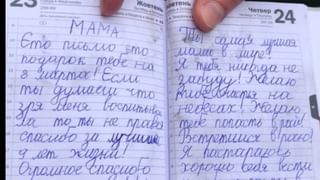 23
Жовтень
МАМА
Это письмо это
подарок тебе на
8 марта! Если
ты думаешь что
зря меня воспитывала
та то ты не права
спасибо за лучшие
9 лет жизни!
Огромное спасибо
Жовтень
Четвер
Четверг
24
Ты самая лучшая
мама в мире!
Я тебя никогда не
забуду! Желаю
счастья на
небесах! Желаю
тебе попасть в рай!
Встретимся в раю!
Я постараюсь
хорошо себя вести